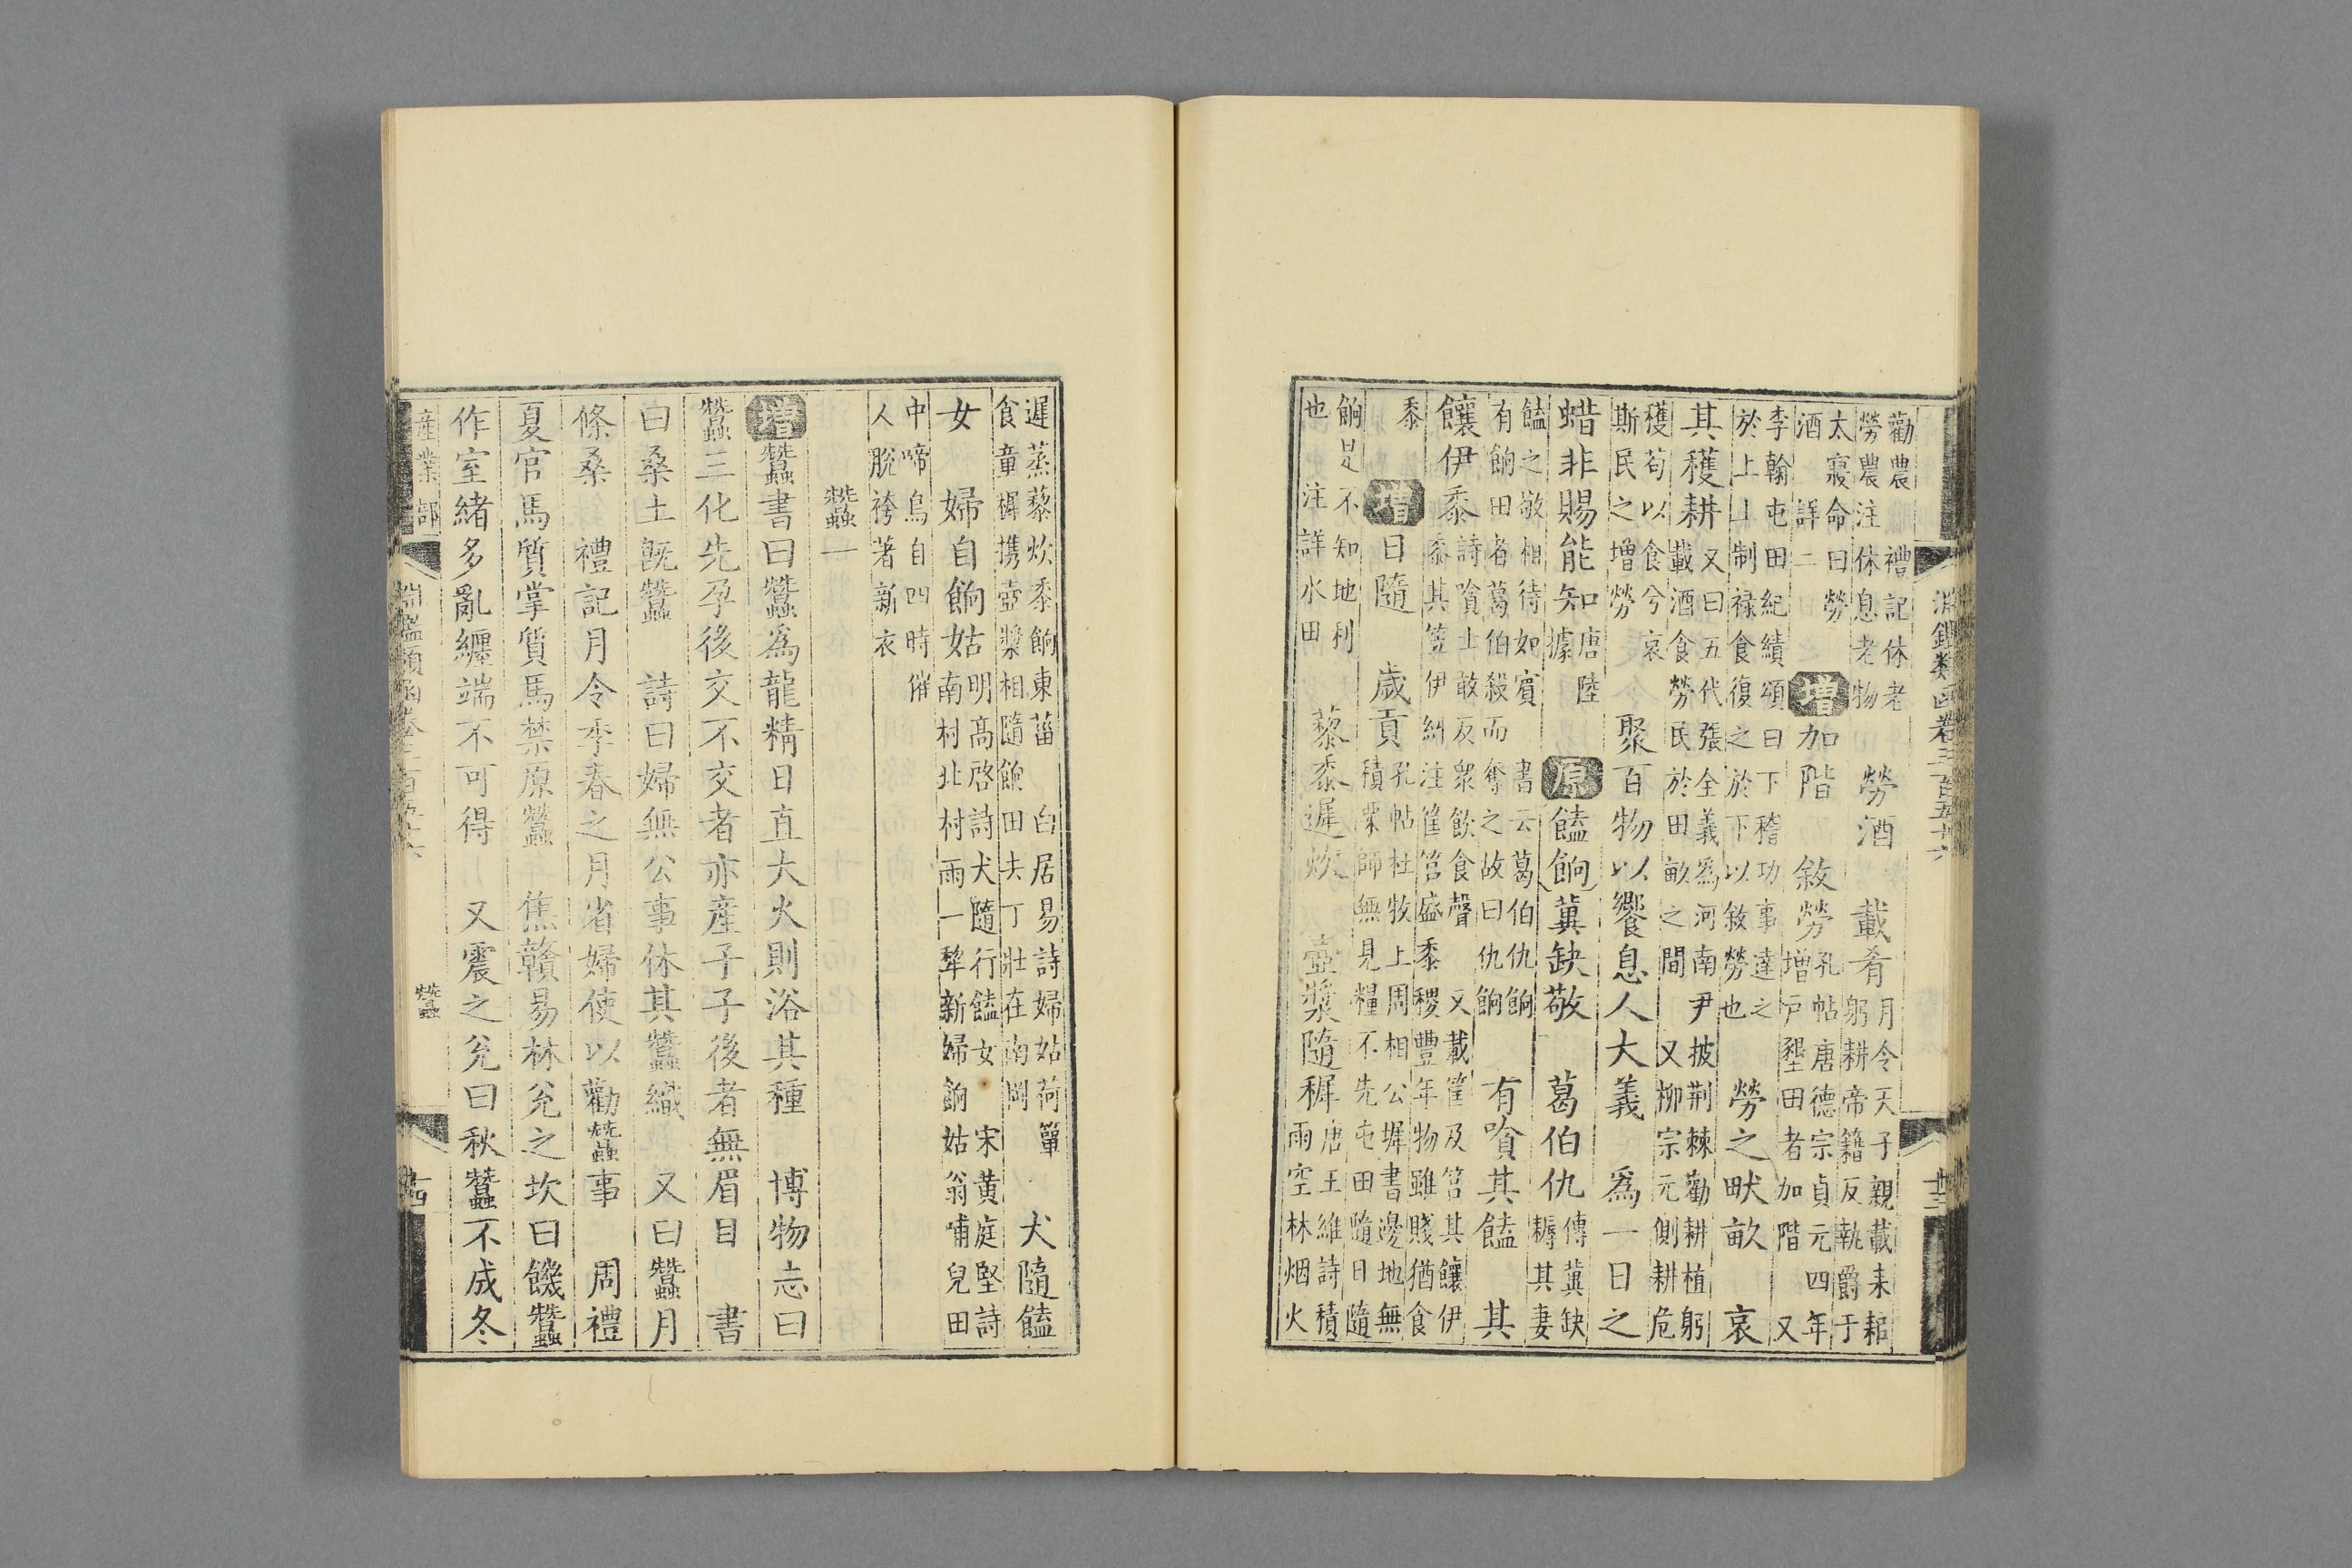 淵鑑類函卷三百五十六
十三
勸農 禮記休老勞農注休息老物 勞酒 載肴 月令天子親載耒耜躬耕帝籍反執爵于
太寢命曰勞酒詳二 增 加階 敘勞 孔帖唐德宗貞元四年增戶墾田者加階 又
李翰屯田紀績頌曰下稽功事達之於上上制祿食復之於下以敘勞也 勞之畎畝 哀
其穫耕 又曰五代張全義為河南尹披荆棘勸耕植躬載酒食勞民於田畝之間 又柳宗元側耕危
穫苟以食兮哀斯民之增勞 聚百物以饗息人大義 為一日之
蜡非賜能知 唐陸據 原 饁餉冀缺敬 葛伯仇 傳冀缺耨其妻
饁之敬相待如賓 書云葛伯仇餉有餉田者葛伯殺而奪之故曰仇餉 有喰其饁 其
饟伊黍 詩喰土敢反衆飲食聲 又載筐及筥其饟伊黍其笠伊糾注筐筥盛黍稷豐年物雖賤猶食
黍 增 日隨 歲貢 孔帖杜牧上周相公墀書邊地無積粟師無見糧不先屯田隨日隨
餉是不知地利也注詳水田 藜黍遲炊 壺漿隨穉 唐王維詩積雨空林烟火
遲蒸藜炊黍餉東菑 白居易詩婦姑荷簞食童穉携壺漿相隨餉田去丁壯在南岡 犬隨饁
女 婦自餉姑 明高啓詩犬隨行饁女 宋黃庭堅詩南村北村雨一犂新婦餉姑翁哺兒田
中啼鳥自四時催人脫袴著新衣
蠶一
增 蠶書曰蠶為龍精日直大火則浴其種 博物志曰
蠶三化先孕後交不交者亦産子子後者無眉目 書
曰桑土旣蠶 詩曰婦無公事休其蠶織 又曰蠶月
條桑 禮記月令季春之月省婦使以勸蠶事 周禮
夏官馬質掌質馬禁原蠶 焦贛易林兊之坎曰饑蠶
作室緒多亂纏端不可得 又震之兊曰秋蠶不成冬
産業部
淵鑑類函卷三百五十六
蠶
十四